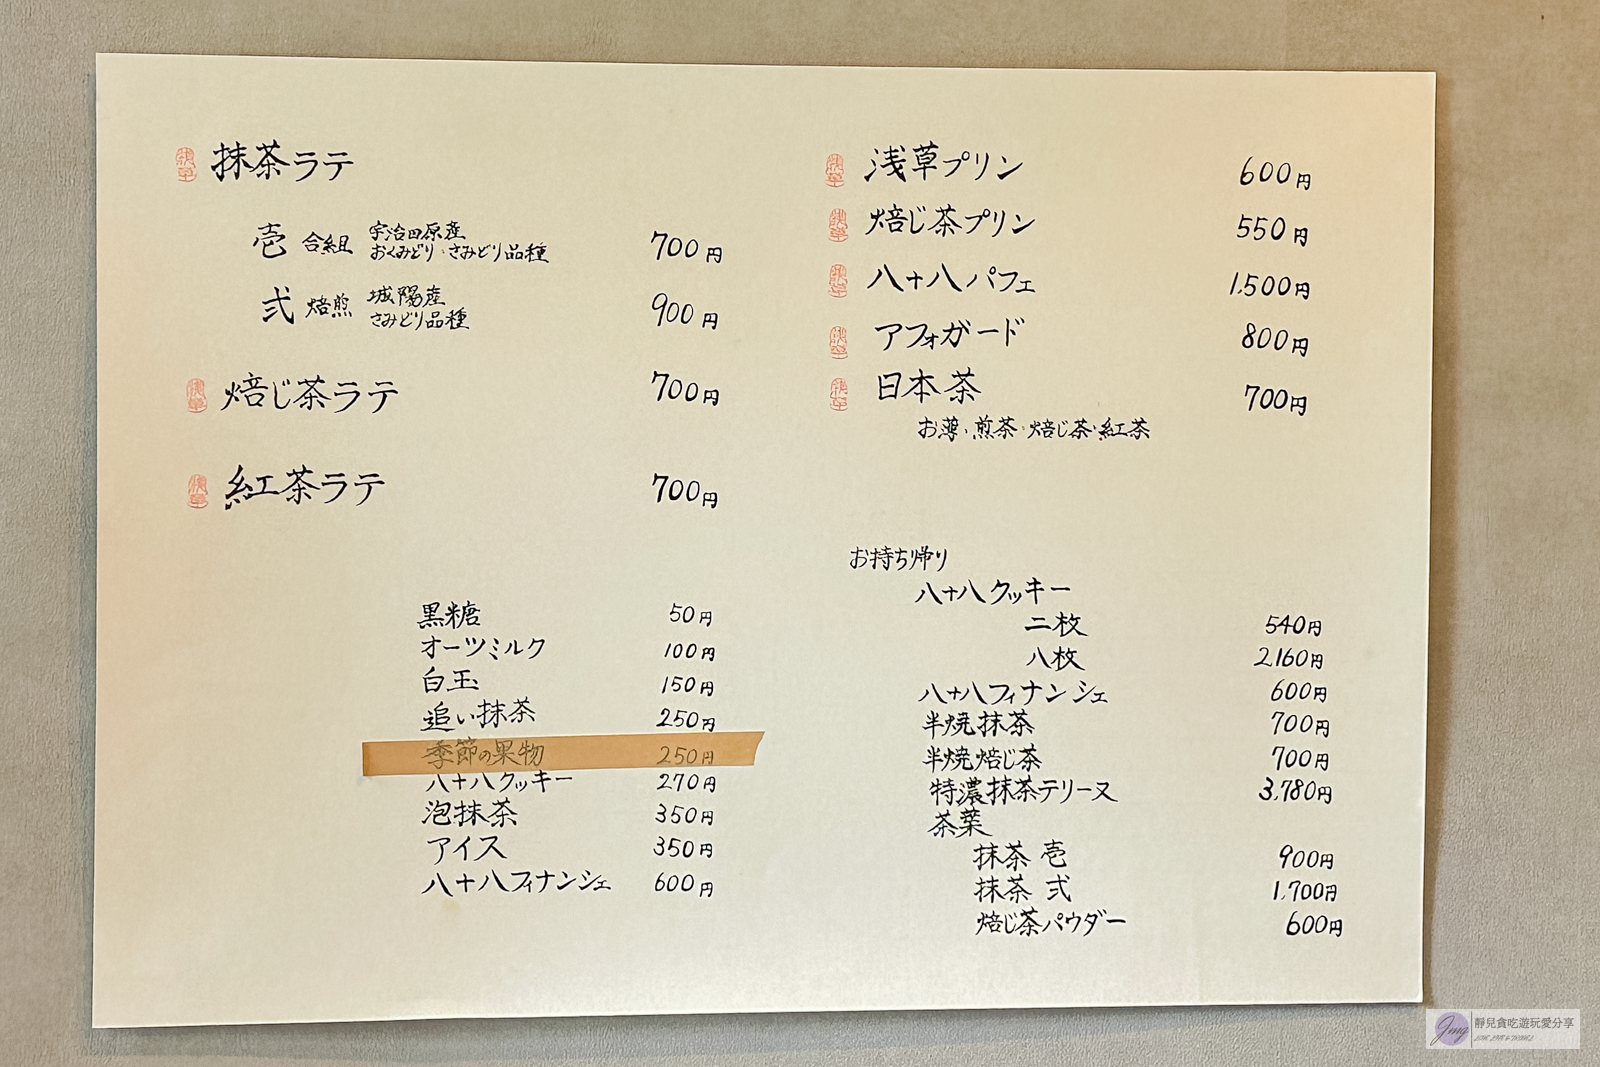 抹茶ラテ
壱 合組 宇治田原産 おくみどり・さみどり品種 700円
弐 焙煎 城陽産 さみどり品種 900円
焙じ茶ラテ 700円
紅茶ラテ 700円
黒糖 50円
オーツミルク 100円
白玉 150円
追い抹茶 250円
季節の果物 250円
八十八クッキー 270円
泡抹茶 350円
アイス 350円
八十八フィナンシェ 600円
浅草プリン 600円
焙じ茶プリン 550円
八十八パフェ 1,500円
アフォガード 800円
日本茶 700円
お薄・煎茶・焙じ茶・紅茶
お持ち帰り
八十八クッキー
二枚 540円
八枚 2,160円
八十八フィナンシェ 600円
半焼抹茶 700円
半焼焙じ茶 700円
特濃抹茶テリーヌ 3,780円
茶葉
抹茶 壱 900円
抹茶 弐 1,700円
焙じ茶パウダー 600円
Jing
靜兒貪吃遊玩愛分享